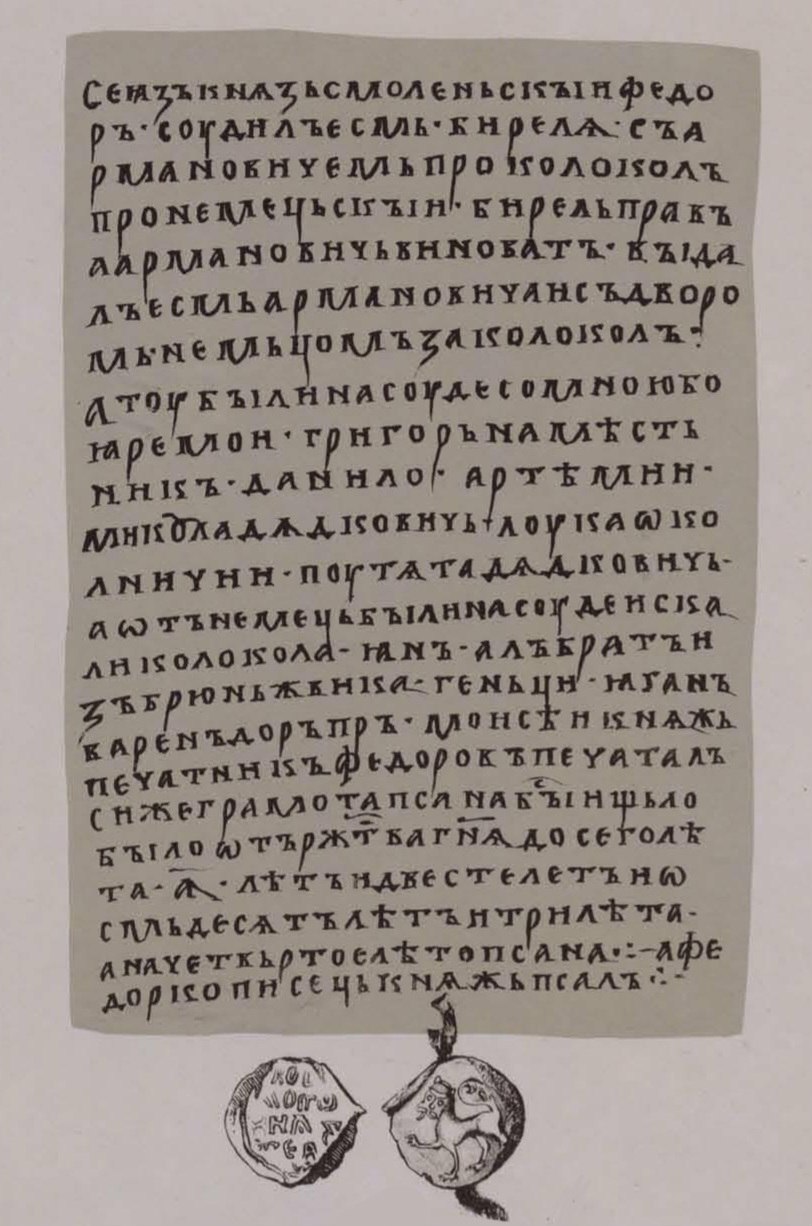 СеꙗзъкнѧзьсмоленьскъіиФедо
ръ · соудилъесмь · бирелѧ · съа
рмановичемьпроколоколъ
пронемецьскъіи · бирельправъ
аармановичьвиноватъ · въіда
лъесмьармановичаисъдворо
мь · немьцомъзаколоколъ ·:
атоубъілинасоудесомноюбо
ꙗремои · григорьнамѣсть
никъ · данило · артѣмии ·
миколадѧдковичь + лоукаѡко
личии · поутѧтадѧдковичь -
аѡтънемецьбъілинасоудеиска
ликолокола - ꙗнъ - альбратъи
зъбрюньжвика - геньци - ꙗганъ
варенъдоръпръ · моисѣикнѧжь
печатникъфедоровъпечаталъ
сижеграмотапсанабъіишьло
бъілоѡтържт҃вагн҃ѧдосеголѣ
та · а҃ · лѣтъидвестелетъиѡ
смьдесѧтълѣтъитрилѣта -
аначетвьртоелѣтопсана ·:- афе
доркописецькнѧжьпсалъ ·:-